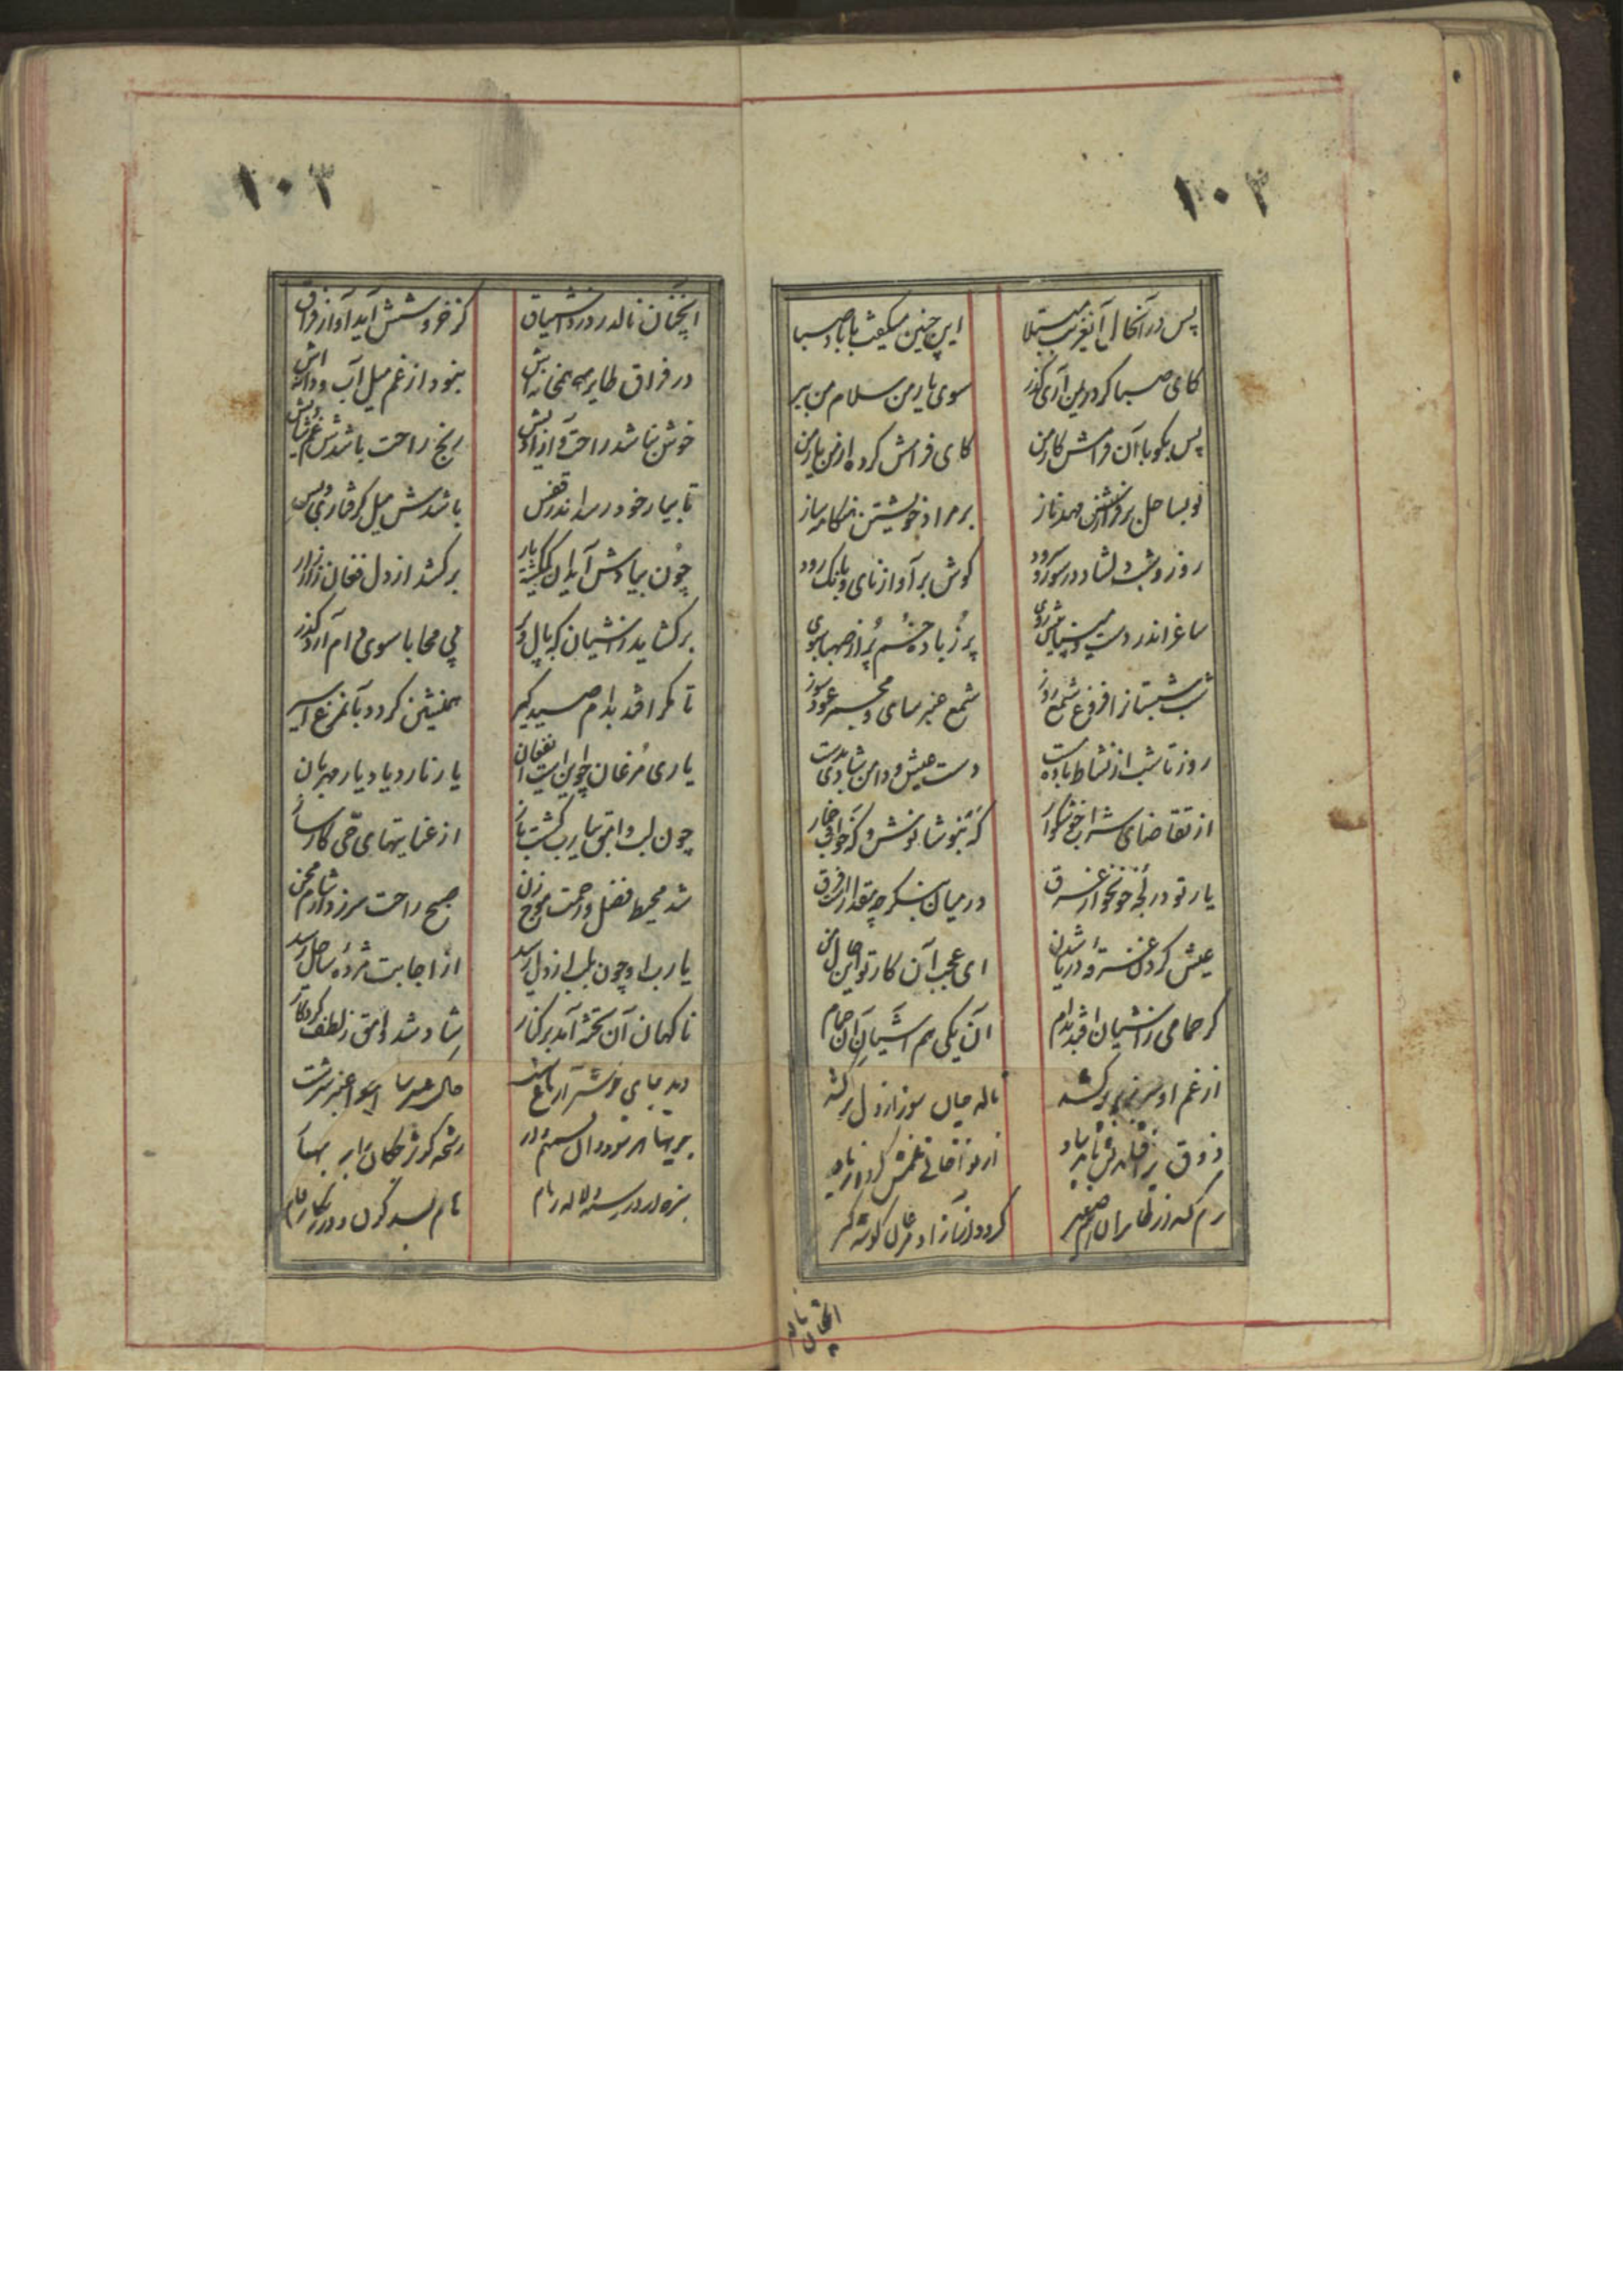 ۱۰۲
پس در آنحال آنغریب مبتلا این چنین میگفت با باد صبا
کای صبا کر در وطن آری گذر سوی یار من سلام من ببر
پس بکو با آن فرامش کار من کای فرامش کرده از من یار من
تو بساحل بر فراز مهد ناز بر مراد خویشتن هنگامه ساز
روز و شب دلشاد در سور و سرود کوش بر آواز نای و بانک رود
ساغر اندر دست و مینا پیش روی پر ز باده خم پر از صهبا سبوی
شب شبستانرا فروغ شمع روز شمع عنبرسای و مجمر عودسوز
روز تا شب از نشاط باده مست دست عیش و دامن شادی بدست
از تقاضای شراب خوشکوار که بنوشانوش و که خواب خمار
یار تو در لجه خونخوار غرق در میان بنکر چه مقدار است فرق
عیش کردن غرقه دریا شدن ای عجب آن کار تو این حال من
کر حمامی ز آشیان افتد بدام آن یکی هم آشیان آن حمام
از غم او سر بزیر پر کشد ناله جان سوز از دل برکشد
ذوق
رم کند از طایران هم صفیر کردد از
آنچنان نالد
۱۰۳
آنچنان نالد ز درد اشتیاق کز خروشش آید آواز فراق
در فراق طایر همخانه‌اش نبود از غم میل آب و دانه‌اش
خوش نباشد راحت و آزادیش رنج راحت باشدش غم شادیش
تا بیار خود رسد اندر قفس باشدش میل گرفتاری و بس
چون بیادش آید آن کمکشته یار برکشد از دل فغان زار زار
برکشاید ز آشیان که بال و پر بی محابا سوی دام آرد گذر
تا مکر افتد بدام صیدکیر همنشین کردد بآنمرغ اسیر
یاری مرغان چو این است الفغان یار نارد یاد یار مهربان
چون لب وامق بیارب کشت باز از عنایتهای حی کارساز
شد محیط فضل و رحمت موج زن صبح راحت سر زد از شام محن
یارب او چون بلب از دل رسید از اجابت مژده ساحل رسید
ناکهان آن تخته آمد بر کنار شاد شد وامق ز لطف کردکار
دید جای خوشتر از باغ بهشت خاک عنبرسا هوا عنبر سرشت
رشحه کوثر چکان ابر بهار
سبزه